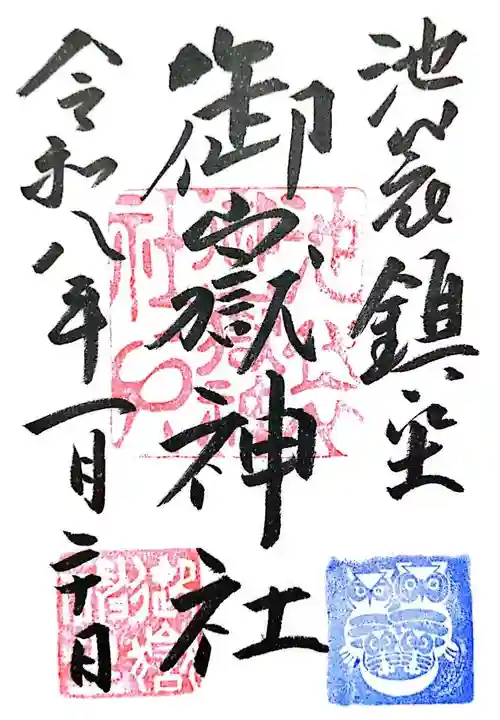 池袋鎮坐
御嶽神社
令和八年一月二十日